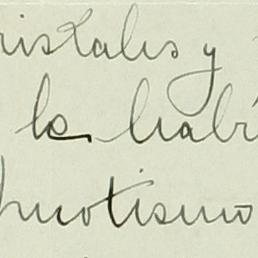 ristales y
la habí
pnotismo